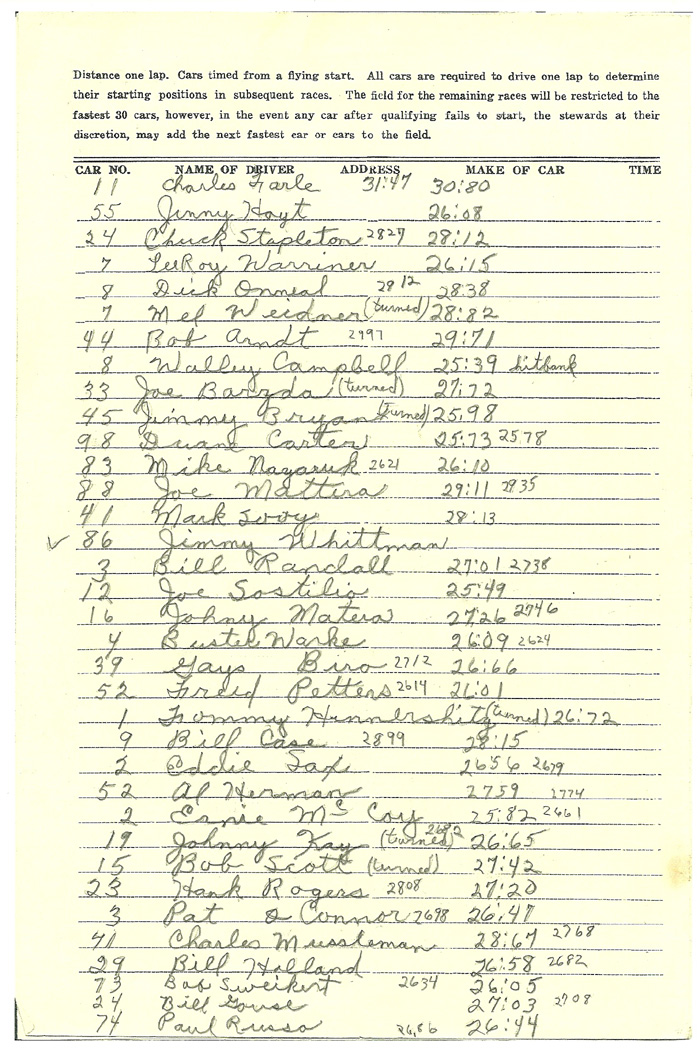 Distance one lap. Cars timed from a flying start. All cars are required to drive one lap to determine
their starting positions in subsequent races. The field for the remaining races will be restricted to the
fastest 30 cars, however, in the event any car after qualifying fails to start, the stewards at their
discretion, may add the next fastest car or cars to the field.
CAR NO. NAME OF DRIVER ADDRESS MAKE OF CAR TIME
11 Charles Earle 31:47 30:80
55 Jimmy Hoyt 26:08
24 Chuck Stapleton 2827 28:12
7 LeeRoy Warriner 26:15
8 Dick Onneal 28 12 28:38
7 Mel Weidner (turned) 28:82
44 Bob Arndt 2997 29:71
8 Walley Campbell 25:39 hit bank
33 Joe Barzda (turned) 27:72
45 Jimmy Bryan (turned) 25,98
98 Duane Carter 25:73 2578
83 Mike Nazaruk 2621 26:10
88 Joe Mattera 29:11 2935
41 Mark 28:13
✓ 86 Jimmy Whittman
3 Bill Randall 27:01 2738
12 Joe Sostilio 25:49
16 Johny Matera 27:26 2746
4 Buster Warke 26:09 2624
39 Gays Biro 2712 26:66
52 Freid Petters 2614 26:01
1 Tommy Hinnershitz (turned) 26:72
9 Bill Case 2899 28:15
2 Eddie Sax 2656 2679
52 Al Herman 2759 2774
2 Ernie Mc Coy 25:82 2661
19 Johnny Kay (turned) 2682 26:65
15 Bob Scott (turned) 27:42
23 Hank Rogers 2808 27:20
3 Pat O Connor 2698 26:47
41 Charles Mussleman 28:67 2768
29 Bill Holland 26:58 2682
73 Bob Sweikert 2634 26:05
24 Bill Gouse 27:03 2708
74 Paul Russo 26,86 26:44